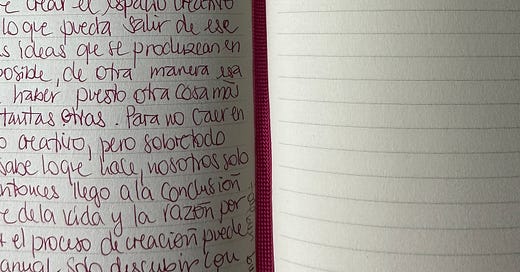 e crear el espacio creativo
lo que pueda salir de ese
s ideas que se produzcan en
posible, de otra manera esa
haber puesto otra cosa más
tantas otras. Para no caer en
o creativo, pero sobretodo
sabe lo que hace, nosotros solo
ntonces llego a la conclusión
e de la vida y la razón por
el proceso de creación puede
anual, solo descubrir con